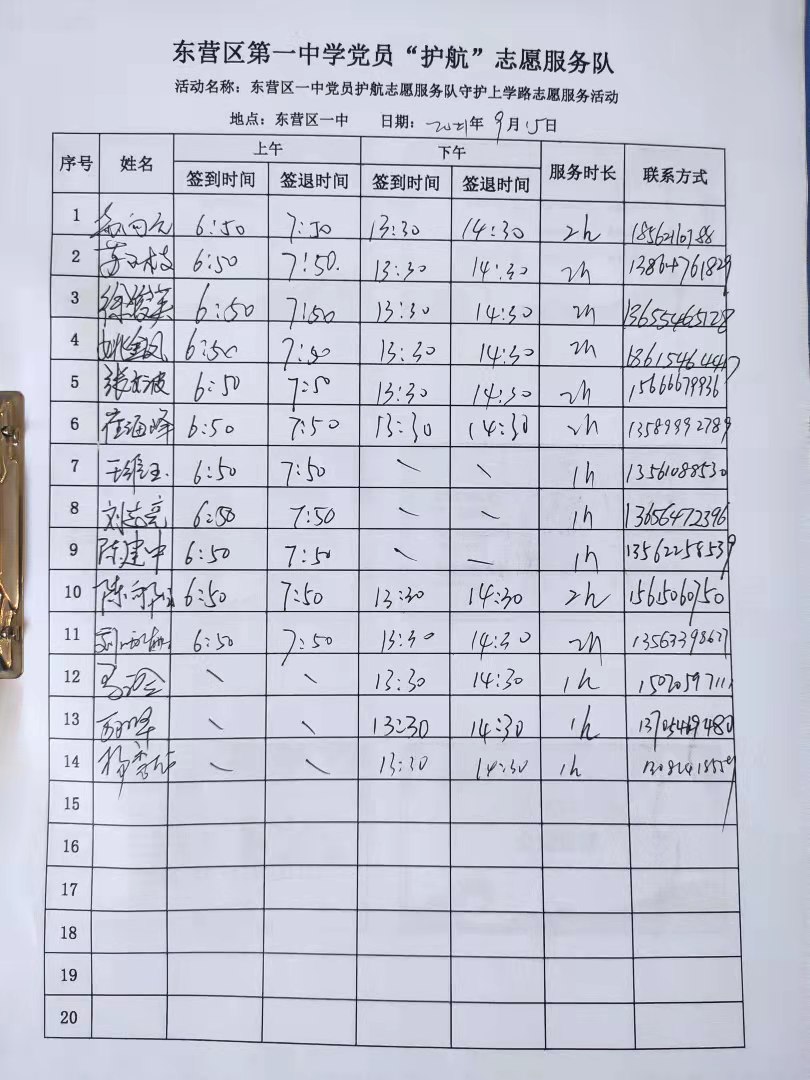 东营区第一中学党员“护航”志愿服务队
活动名称：东营区一中党员护航志愿服务队守护上学路志愿服务活动
地点：东营区一中 日期：2021年9月15日
序号 姓名 上午 下午 服务时长 联系方式
签到时间 签退时间 签到时间 签退时间
1 6:50 7:50 13:30 14:30 2h
2 6:50 7:50. 13:30 14:30 2h 13864761829
3 徐俊英 6:50 7:50 13:30 14:30 2h 13655465128
4 姚金凤 6:50 7:50 13:30 14:30 2h
5 6:50 7:50 13:30 14:30 2h 15666679936
6 崔海峰 6:50 7:50 13:30 14:30 2h 13589992789
7 王维玉 6:50 7:50 \ \ 1h 13561088530
8 刘志亮 6:50 7:50 \ \ 1h 13656472396
9 陈建中 6:50 7:50 \ — 1h 13562258539
10 6:50 7:50 13:30 14:30 2h 15615060750
11 6:50 7:50 13:30 14:30 2h 13563398627
12 \ \ 13:30 14:30 1h 15020597111
13 \ \ 13:30 14:30 1h 13705469480
14 \ \ 13:30 14:30 1h
15
16
17
18
19
20